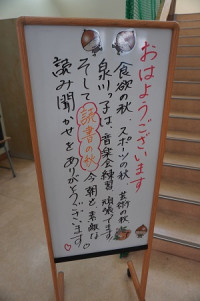 おはようございます
食欲の秋、スポーツの秋 芸術の秋
泉川っ子は、音楽会練習 頑張ってます。
そして 読書の秋 今朝も 素敵な
読み聞かせを ありがとうございます。